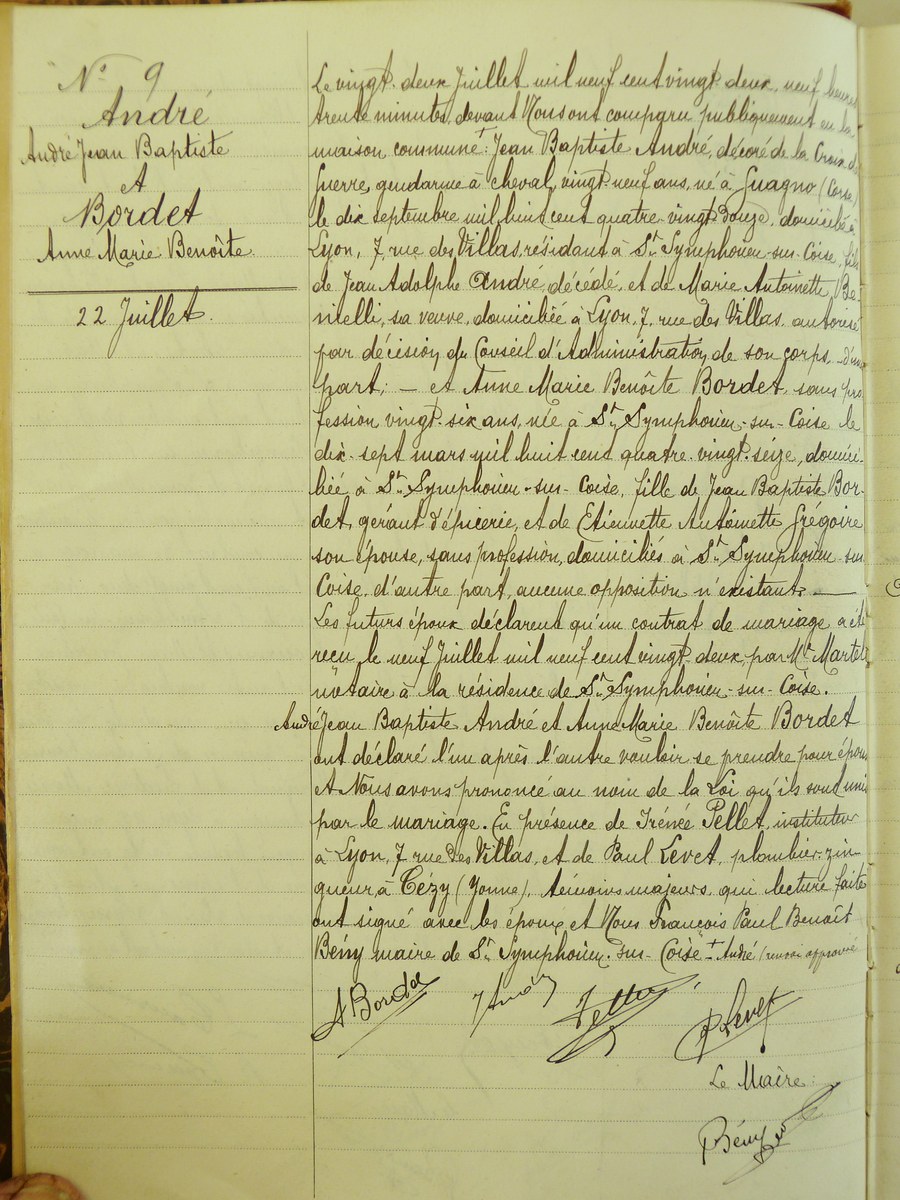 N° 9
André
André Jean Baptiste
et
Bordet
Anne Marie Benoîte
22 Juillet.
Le vingt-deux Juillet mil neuf cent vingt-deux, neuf heures
trente minutes, devant Nous ont comparu publiquement en la
maison commune + : Jean Baptiste André, décoré de la Croix de
guerre, gendarme à cheval, vingt-neuf ans, né à Guagno (Corse)
le dix septembre mil huit cent quatre-vingt-douze, domicilié à
Lyon, 7, rue des Villas, résidant à St Symphorien-sur-Coise, fils
de Jean Adolphe André, décédé, et de Marie Antoinette Be-
nielli, sa veuve, domiciliée à Lyon, 7, rue des Villas, autorisé
par décision du Conseil d'Administration de son corps, d'une
part; — et Anne Marie Benoîte Bordet, sans pro
fession, vingt-six ans, née à St Symphorien-sur-Coise le
dix-sept mars mil huit cent quatre-vingt-seize, domici-
liée à St Symphorien-sur-Coise, fille de Jean Baptiste Bor-
det, gérant d'épicerie, et de Etiennette Antoinette Grégoire
son épouse, sans profession, domiciliés à St Symphorien-sur
Coise, d'autre part, aucune opposition n'existant. —
Les futurs époux déclarent qu'un contrat de mariage a été
reçu le neuf Juillet mil neuf cent vingt-deux, par Me Martel
notaire à la résidence de St Symphorien-sur-Coise.
André Jean Baptiste André et Anne Marie Benoîte Bordet
ont déclaré l'un après l'autre vouloir se prendre pour époux
et Nous avons prononcé au nom de la Loi qu'ils sont unis
par le mariage. En présence de Irénée Pellet, instituteur
à Lyon, 7, rue des Villas, et de Paul Levet, plombier-zin-
gueur, à Cézy (Yonne), témoins majeurs, qui, lecture faite
ont signé avec les époux et Nous François Paul Benoît
Bény maire de St Symphorien-sur-Coise + André / renvoi approuvé
A Bordet
J André
Pellet
P Levet
Le Maire:
Bény